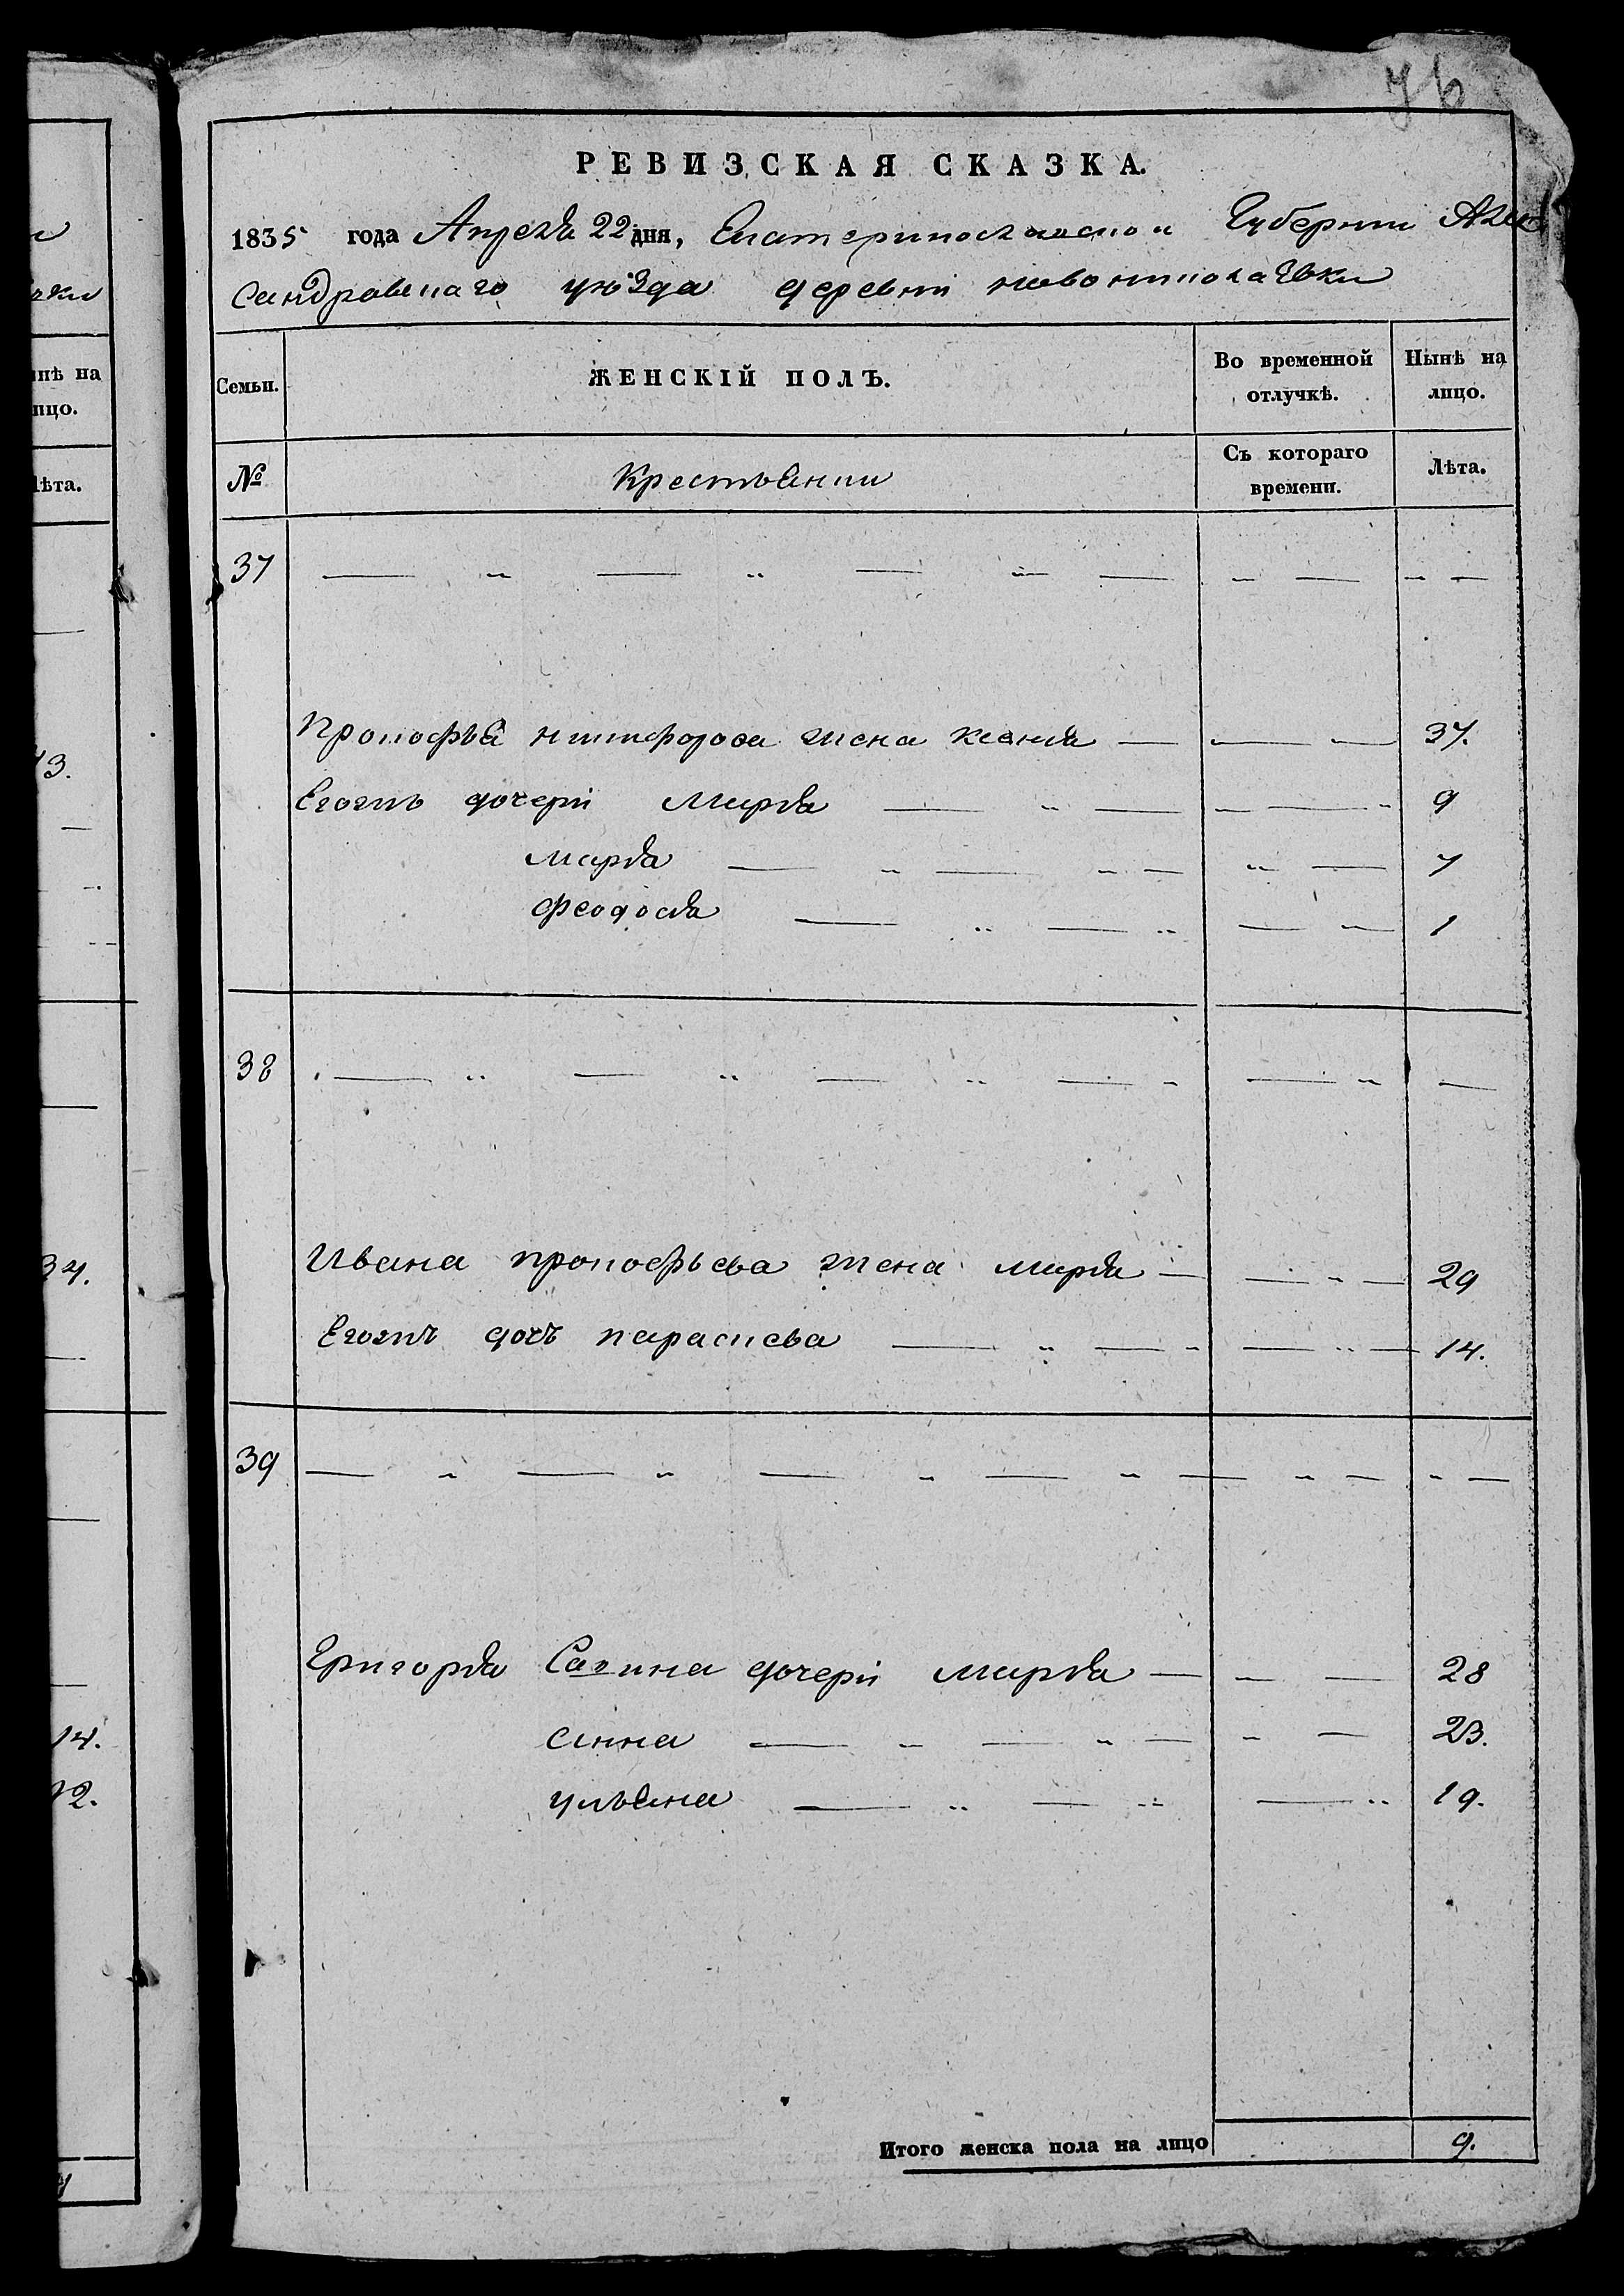 76
РЕВИЗСКАЯ СКАЗКА.
1835 года Апреля 22 дня, Екатеринославской Губернии Алек
сандровскаго уезда деревни новониколаевки
Семьи. ЖЕНСКІЙ ПОЛЪ. Во временной отлучкѣ. Нынѣ на лицо.
№ Крестьянки Съ котораго времени. Лѣта.
37
Прокофья никифорова жена ксения 37.
Егожъ дочери Марья 9
марья 7
феодосья 1
38
Ивана прокофьева жена марья 29
Егожъ дочь параскева 14.
39
Григорья дочери марья 28
анна 23.
ульяна 19.
Итого женска пола на лицо 9.
нѣ на
ицо.
лѣта.
34.
14.
12.